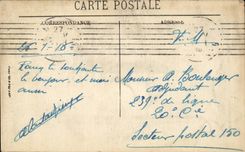 CARTE POSTALE
CORRESPONDANCE
ADRESSE
27
27
F. M.
26-7-18
Fany te souhaite
le bonjour et moi
aussi
Monsieur A. Boulenger
Adjudant
239e de ligne
20e Cie
Secteur postal 150